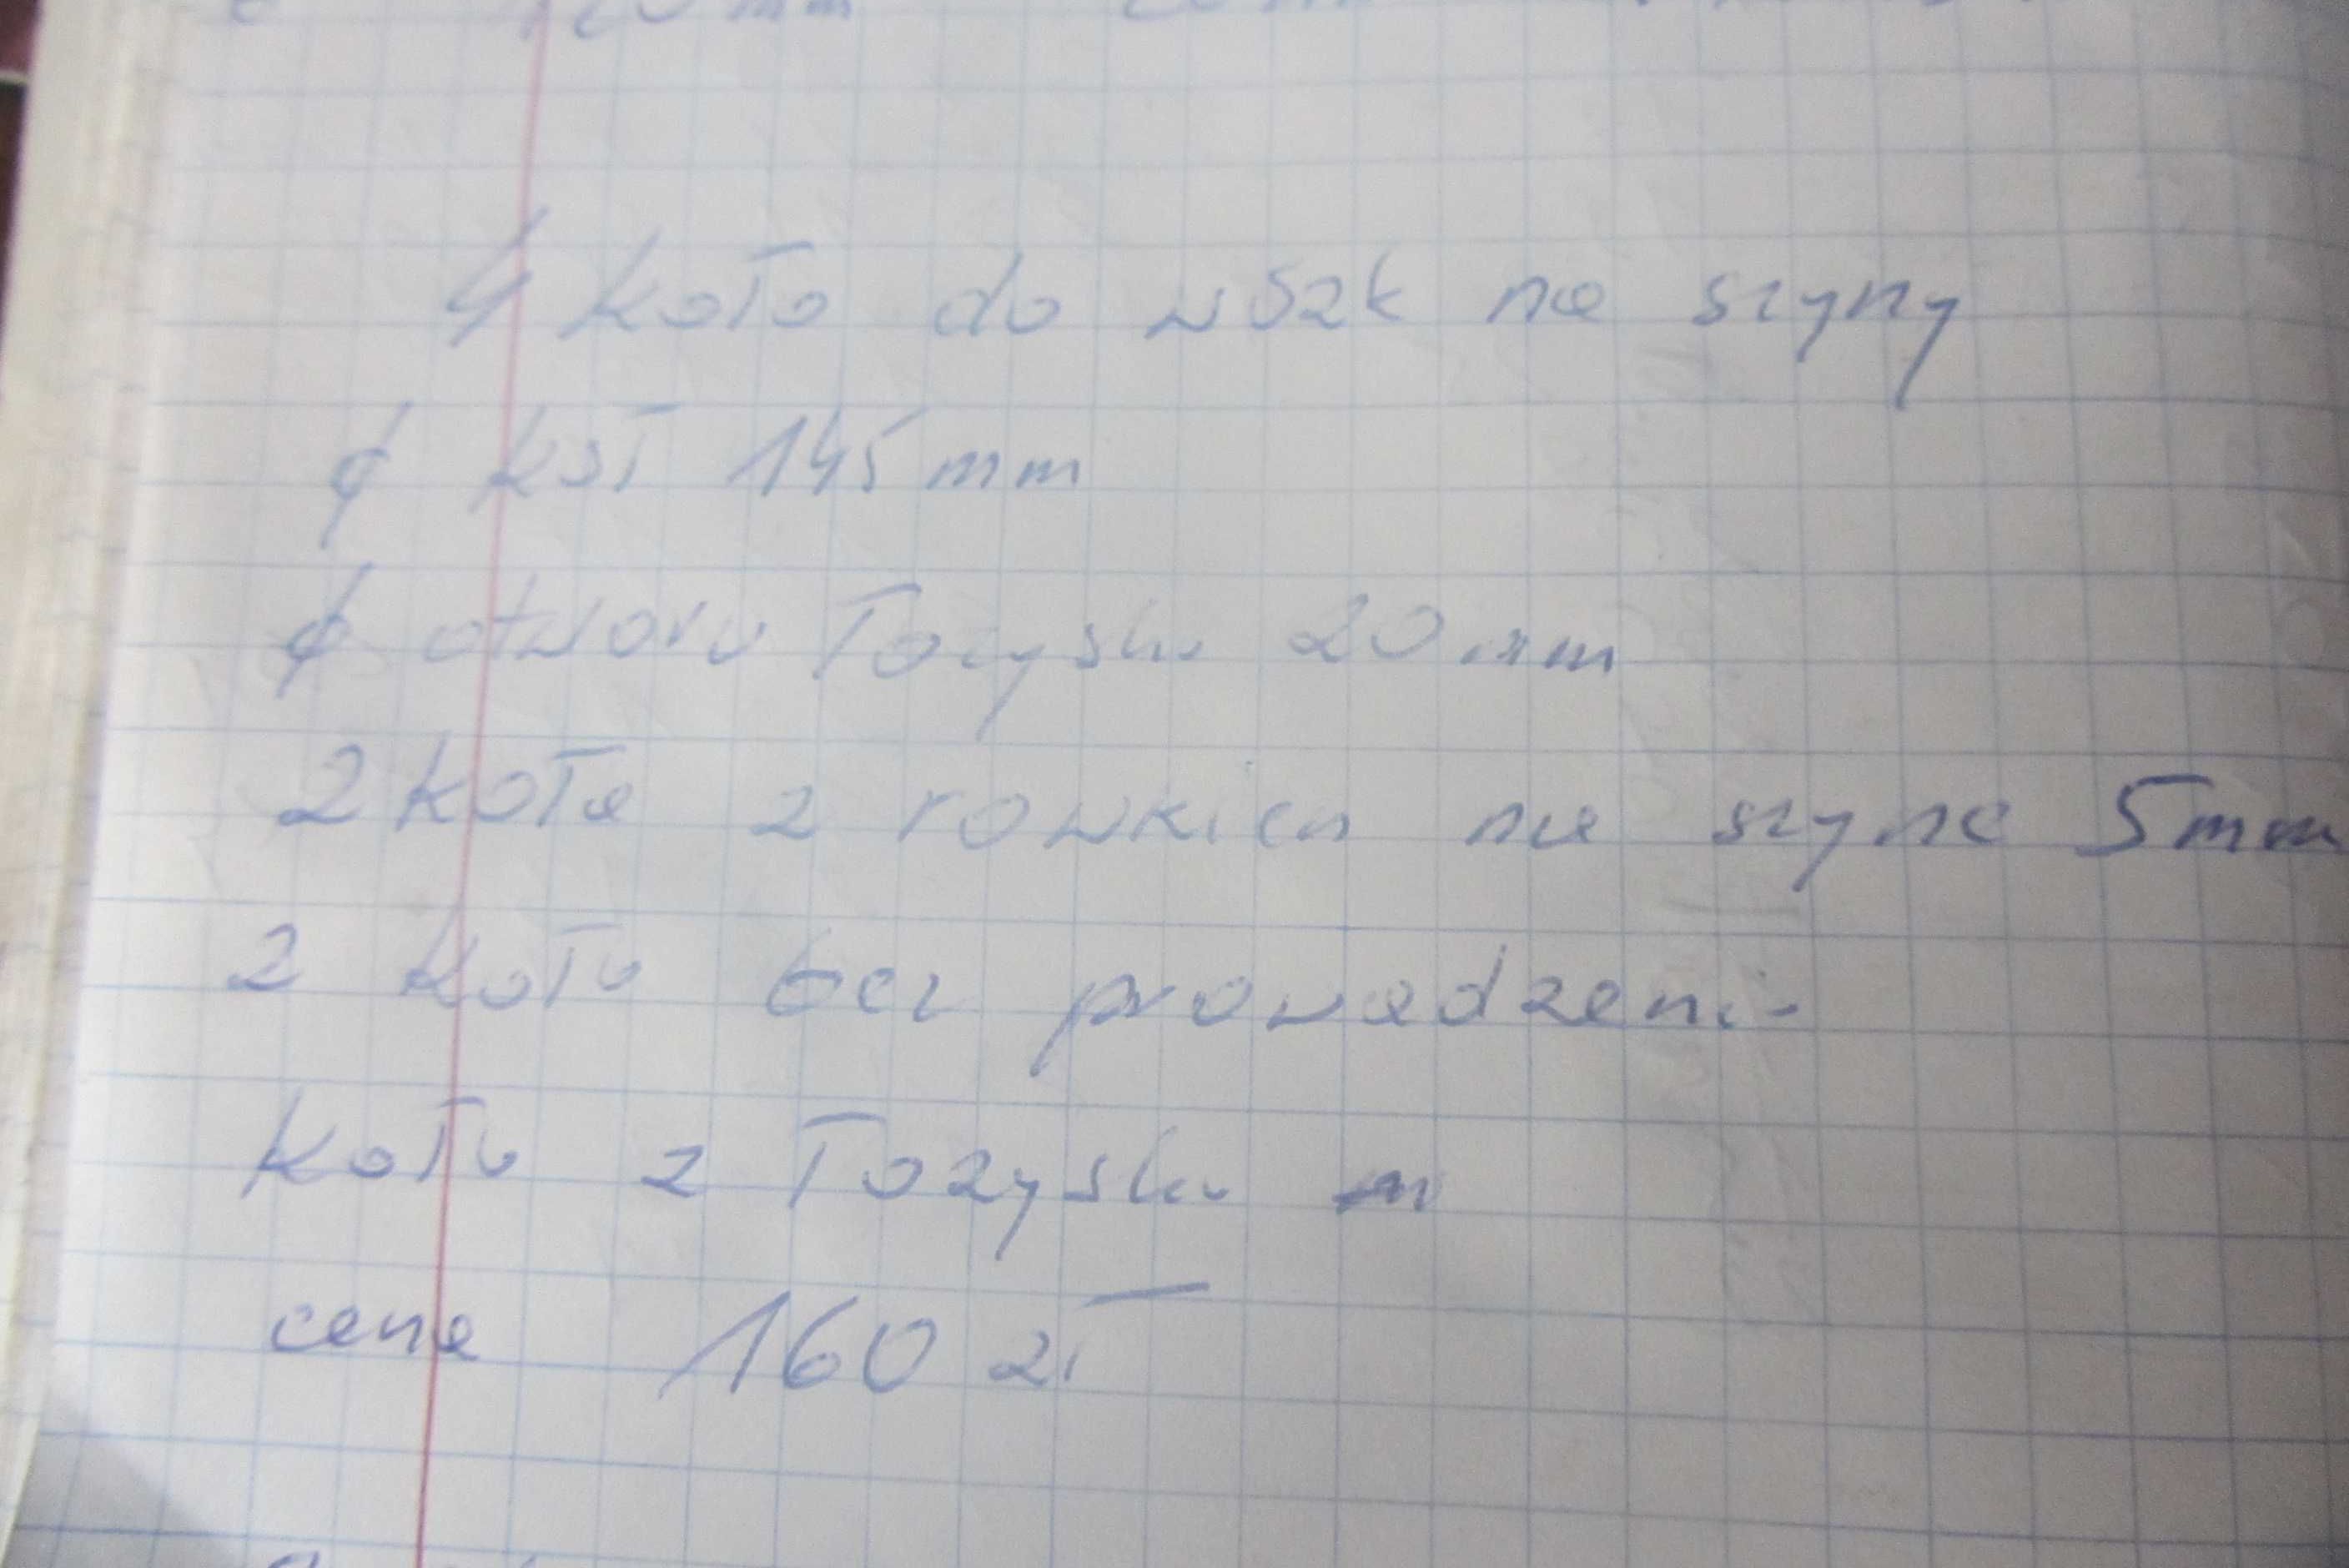 120 mm
4 koło do wózk na szyny
ϕ kół 145 mm
ϕ otworu łożysku 20 mm
2 koła z rowkien na szyne 5mm
2 koło bez prowadzeni-
koło z łożysku
cena 160 zł